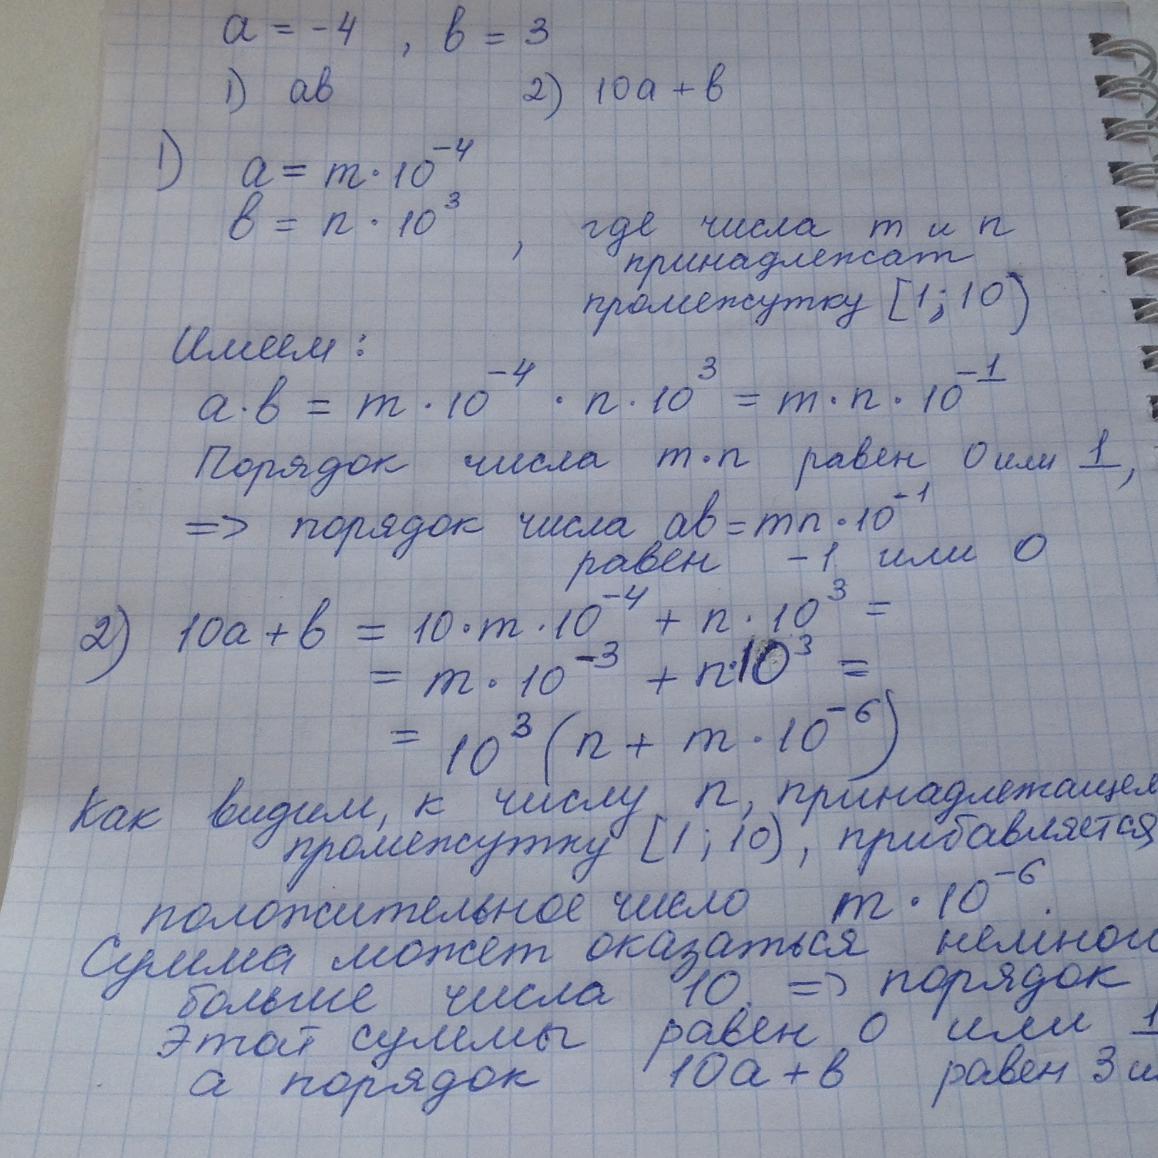 a = -4 , b = 3
1) ab 2) 10a + b
1) a = m · 10⁻⁴
b = n · 10³ , где числа m и n
принадлежат
промежутку [1; 10)
Имеем:
a·b = m · 10⁻⁴ · n · 10³ = m · n · 10⁻¹
Порядок числа m·n равен 0 или 1,
=> порядок числа ab = mn · 10⁻¹
равен -1 или 0
2) 10a + b = 10 · m · 10⁻⁴ + n · 10³ =
= m · 10⁻³ + n·10³ =
= 10³ (n + m · 10⁻⁶)
Как видим, к числу n, принадлежащем
промежутку [1; 10), прибавляется
положительное число m · 10⁻⁶.
Сумма может оказаться немног
больше числа 10. => порядок
этой суммы равен 0 или 1
а порядок 10a + b равен 3 и